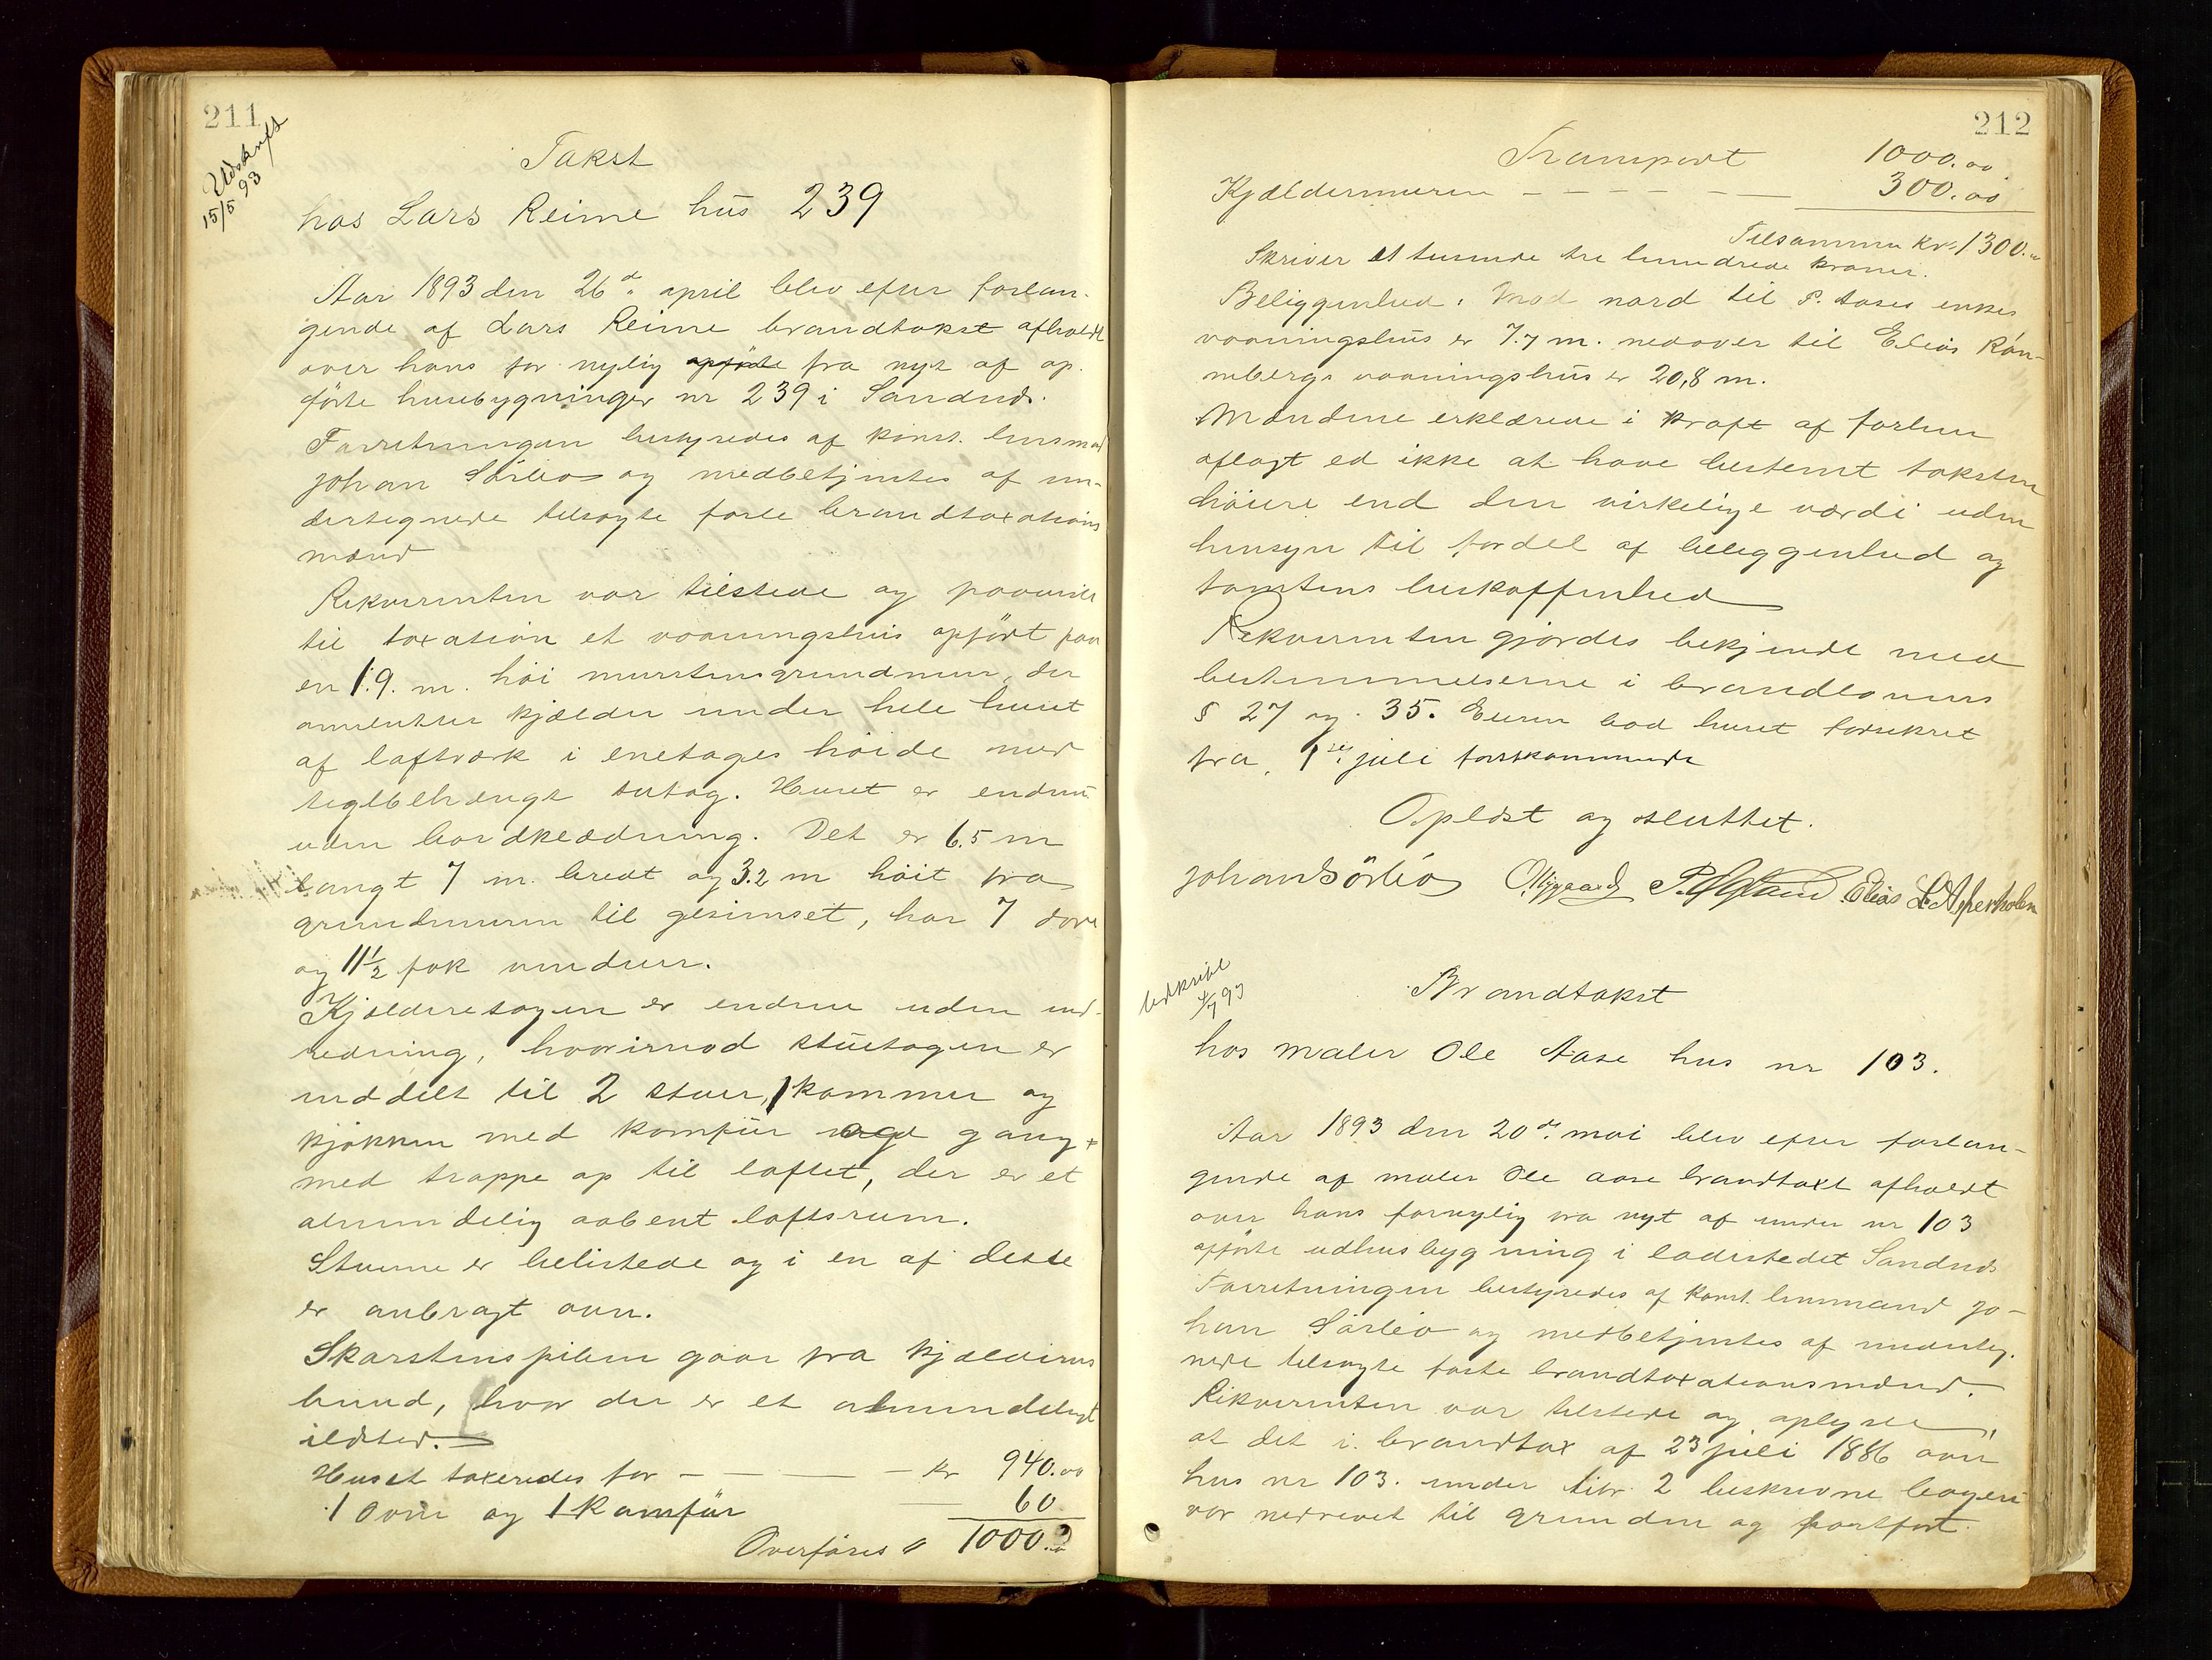 211
Udskrift
15/5 93
Takst
hos Lars Reime hus 239
Aar 1893 den 26de april blev efter forlan-
gende af Lars Reime brandtakst afholdt
over hans for nylig opførte fra nyt af op-
førte husebygninger nr 239 i Sandnes.
Forretningen bestyredes af konst. lensmand
Johan Sörbö og medbetjentes af un-
dertegnede tilsagte faste brandtaxations
mænd
Rekvirenten var tilstede og paaviste
til taxation et vaaningshus opført paa
en 1.9. m. høi murstensgrundmur, der
omslutter kjælder under hele huset
af laftværk i enetages høide med
teglbehængt tutag. Huset er endnu
uden bordklædning. Det er 6.5 m
langt 7 m. bredt og 3.2 m høit fra
grundmuren til gesimset, har 7 døre
og 11½ fok vinduer.
Kjælderetagen er endnu uden ind-
redning, hvorimod stuetagen er
inddelt til 2 stuer, 1 kammer og
kjøkken med komfür gang
med trappe op til loftet, der er et
almindelig aabent loftsrum.
Stuerne er belistede og i en af disse
er anbragt ovn.
Skorstenspiben gaar fra kjælderens
bund, hvor der er et almindeligt
ildsted.
Huset taxeredes for - - - kr 940.00
1 ovn og 1 Komfür — 60
Overføres " 1000.00
212
Transport 1000.00
Kjældermuren - - - - - 300.00
Tilsammen kr. 1300.00
Skriver et tusinde tre hundrede kroner.
Beliggenhed: Mod nord til P. Aases enkes
vaaningshus er 7.7 m. nedover til Elias Røn-
nebergs vaaningshus er 20,8 m.
Mændene erklærede i kraft af forhen
aflagt ed ikke at have bestemt taksten
høiere end den virkelige værdi uden
hensyn til fordel af beliggenhed og
tomtens beskaffenhed
Rekvirenten gjordes bekjendt med
bestemmelserne i brandlovens
§ 27 og 35. Eieren bad huset forsikret
fra 1ste juli førstkommende
Oplæst og sluttet.
Johan Sörbö O. Nygaard P. Elias L. Asperholm
Udskrift
4/7 93
Brandtakst
hos maler Ole Aase hus nr 103.
Aar 1893 den 20de mai blev efter forlan-
gende af maler Ole Aase brandtaxt afholdt
over hans fornylig fra nyt af under nr 103
opførte udhusbygning i ladestedet Sandnes
Forretningen bestyredes af konst. lensmand Jo-
han Sörbö og medbetjentes af underteg-
nede tilsagte faste brandtaxationsmænd.
Rekvirenten var tilstede og oplyste,
at det i brandtax af 23 juli 1886 over
hus nr 103. under litr. 2 beskrevne bageri
var nedrevet til grunden og bortført.